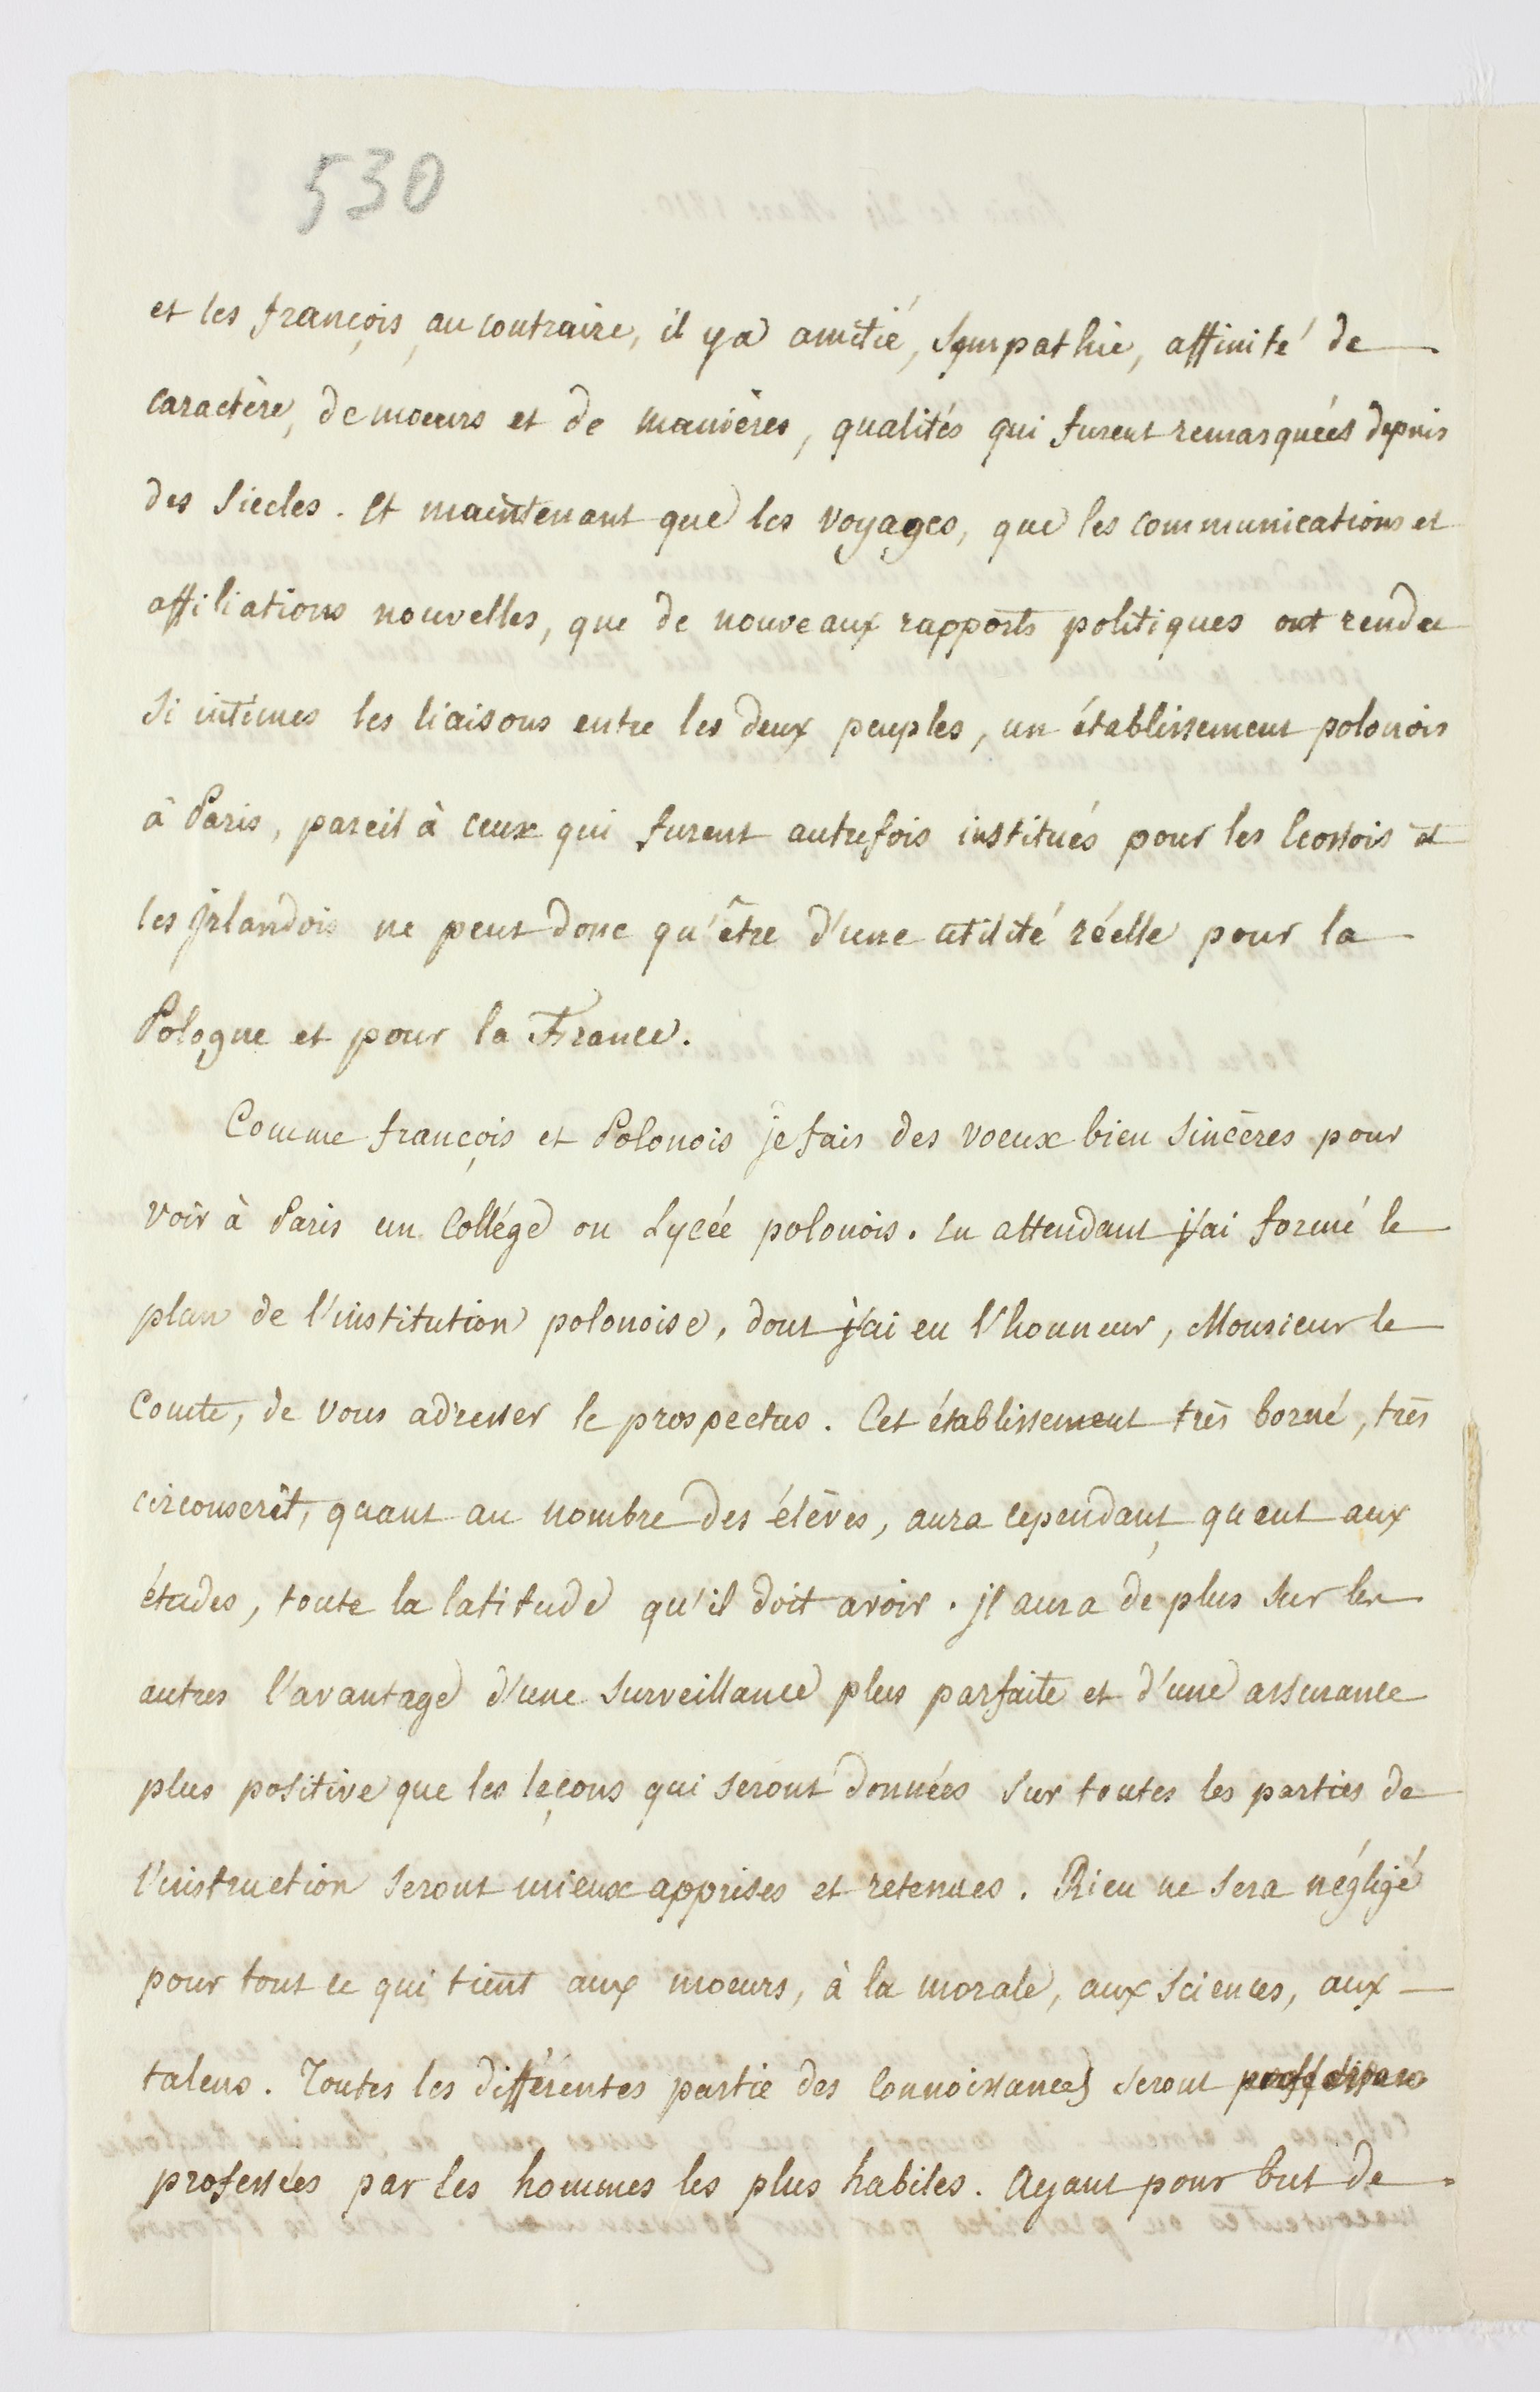 530
et les françois, au contraire, il y a amitié, Sympathie, affinité de
caractère, de moeurs et de manières, qualités qui furent remarquées depuis
des Siecles. Et maintenant que les voyages, que les communications et
affiliations nouvelles, que de nouveaux rapports politiques ont rendu
Si intimes les liaisons entre les deux peuples, un établissement polonois
à Paris, pareil à ceux qui furent autrefois institués pour les Ecossois et
les jrlandois ne peut donc qu'être d'une utilité réelle pour la
Pologne et pour la France.
Comme françois et Polonois je fais des voeux bien Sincères pour
voir à Paris un Collége ou Lycée polonois. En attendant j'ai formé le
plan de l'institution polonoise, dont j'ai eu l'honneur, Monsieur le
Comte, de vous adresser le prospectus. Cet établissement très borné, très
circonscrit, quant au nombre des élèves, aura cependant, quant aux
études, toute la latitude qu'il doit avoir. jl aura de plus Sur les
autres l'avantage d'une Surveillance plus parfaite et d'une assurance
plus positive que les leçons qui seront données Sur toutes les parties de
l'instruction Seront mieux apprises et retenues. Rien ne Sera négligé
pour tout ce qui tient aux moeurs, à la morale, aux Sciences, aux
talens. Toutes les différentes partie des Connoissances seront
professées par les hommes les plus habiles. Ayant pour but de